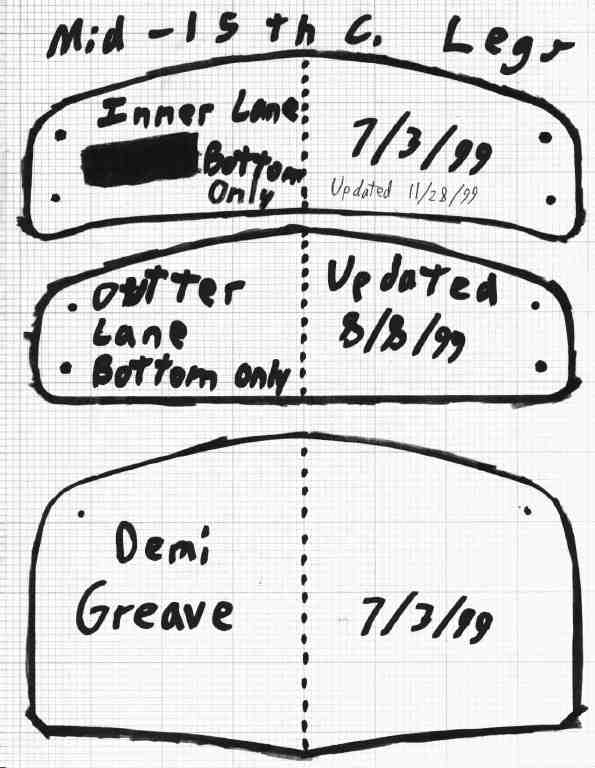 Mid-15th C. Legs
Inner Lane
Bottom
Only
7/3/99
Updated 11/28/99
Outter
Lane
Bottom only
Updated
8/8/99
Demi
Greave
7/3/99